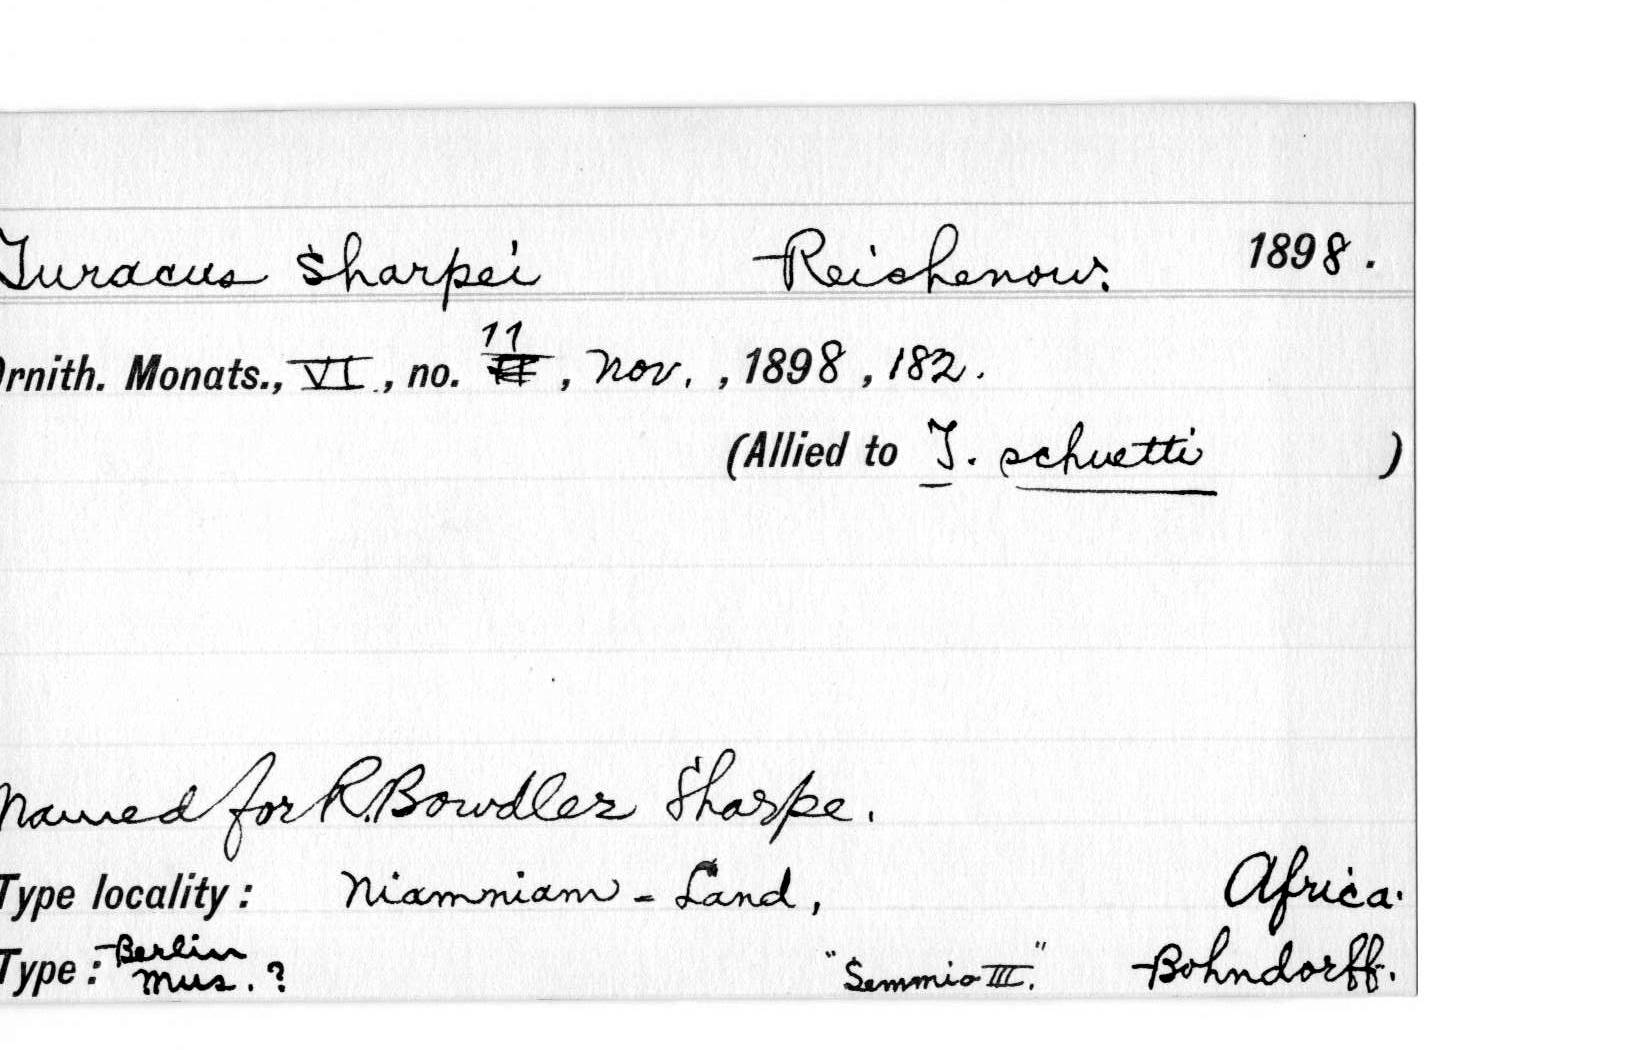 Turacus Sharpei Reichenow. 1898.
rnith. Monats., VI., no. 11, Nov., 1898, 182.
(Allied to T. schuetti )
Named for R. Bowdler Sharpe.
Type locality: Niamniam-Land, Africa.
Type: Berlin Mus.? "Semmio III." Bohndorff.